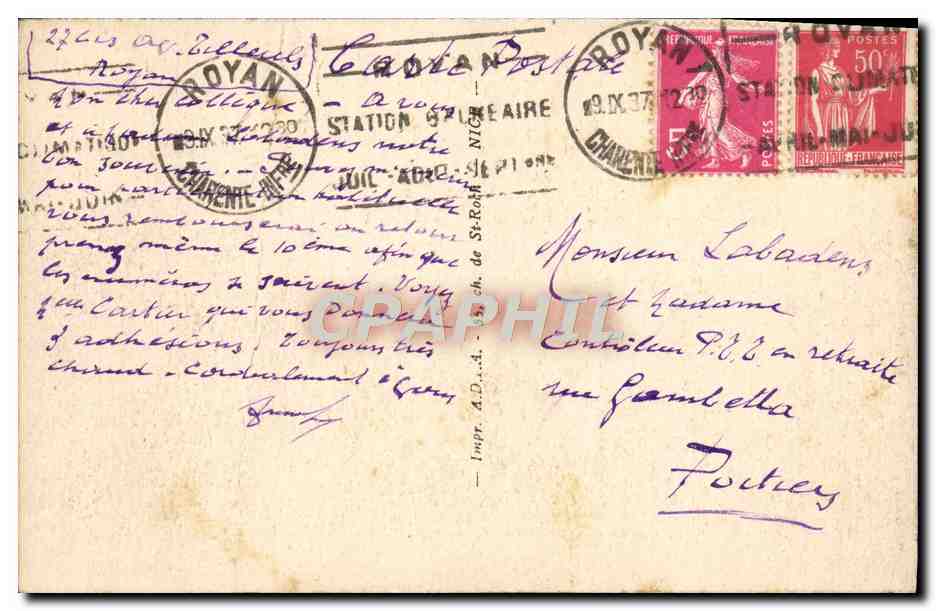 27 bis av. Tilleuls
Royan
Carte Postale
Mon cher collègue - A vous
et à Madame Labadens notre
bon souvenir.
pour
vous rembourserai au retour
prenez même le 10ème afin que
les numéros se suivent. Voyez
Cartier qui vous donnera
3 adhésions. Toujours très
chaud. Cordialement à vous
ROYAN
9.IX.37 12 30
CHARENTE-INFRE
ROYAN
STATION BALNEAIRE
JUIL-AOUT-SEPTBRE
ROYAN
9.IX.37 12 30
CHARENTE-INFRE
ROYAN
STATION CLIMATI
AVRIL-MAI-JUI
CLIMATIQUE
MAI-JUIN
REPUBLIQUE FRANÇAISE
5
POSTES
POSTES
50c
REPUBLIQUE-FRANÇAISE
Monsieur Labadens
et Madame
Contrôleur P.T.T. en retraite
rue Gambetta
Poitiers
Impr. A.D.I.A. - ch. de St-Roch NICE
CPAPHIL